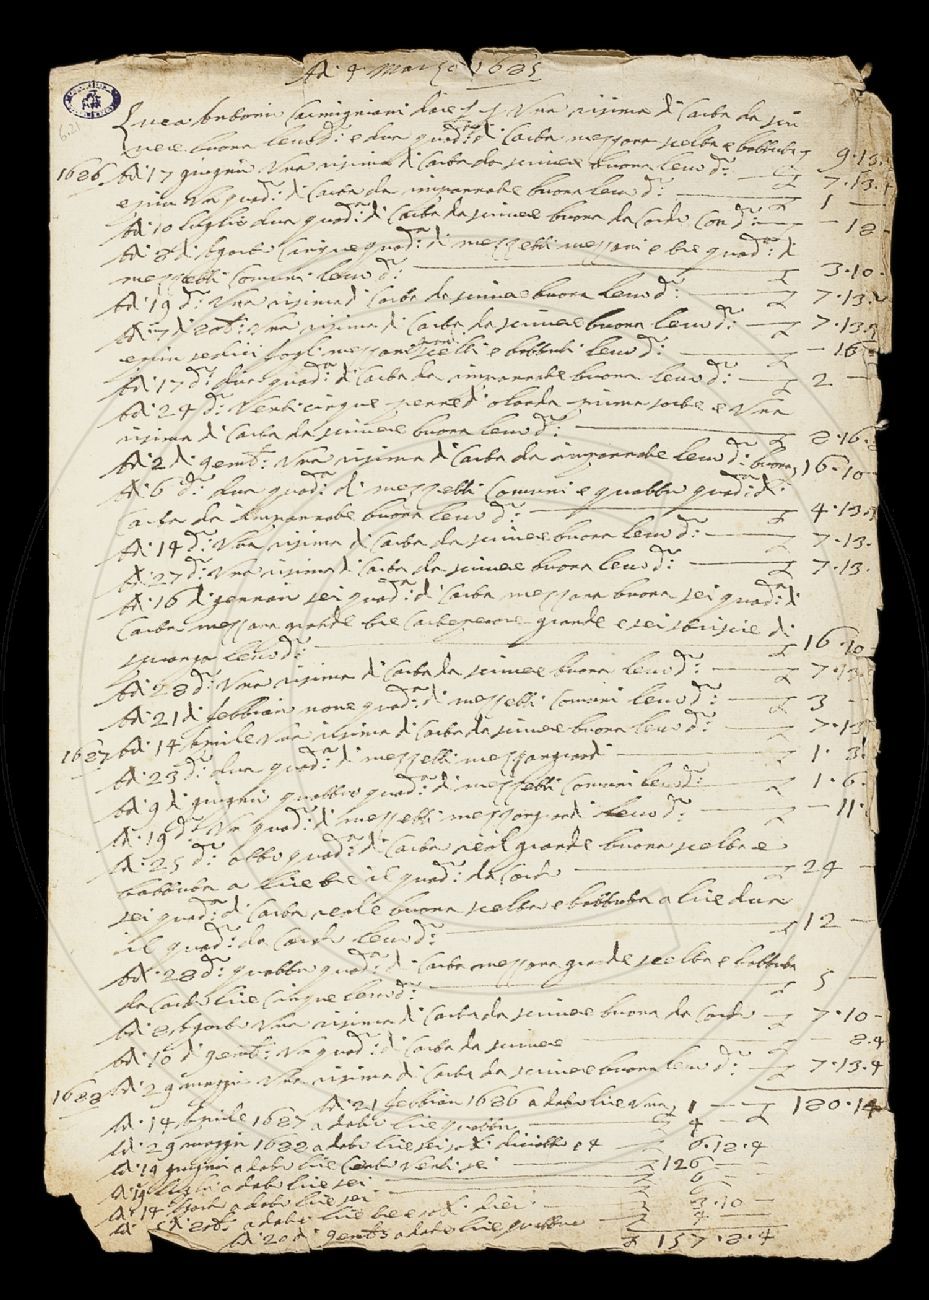 Ad: 4 marzo 1685
Luca Antonio Carmignani dare Una risima di Carta da scri
vere buona lev d:º e dua quad:ni di Carta mezzana scelta e battuta 9·13·
1686 Ad: 17 giugno Una risima di Carta da scrivere buona lev d:º 7·13·4
e piu Un quad:º di Carta da impannate buona lev d:º 1 —
Ad: 10 luglio dua quad:ni di Carta da scrivere buona da Carlo Con d:º — 18 —
Ad: 8 di Agosto Cinque quad:ni di mezzetti mezzani e tre quad:ni di
mezzetti Comuni lev d:º 3·10·
Ad: 19 d:º Una risima di Carta da scrivere buona lev d:º 7·13·4
Ad: 7 di 8ob: Una risima di Carta da scrivere buona lev d:º 7·13·4
e piu sedici fogli mezzani scelti e battuti lev d:º — 16 —
Ad: 17 d:º dua quad:ni di Carta da impannate buona lev d:º 2 —
Ad: 24 d:º Venticinque penne di olanda prima sorte e Una
risima di Carta da scrivere buona lev d:º 8·16·
Ad: 2 di 9emb: Una risima di Carta da impannate lev d:º buona 16·10
Ad: 6 d:º dua quad:ni di mezzetti Comuni e quattro quad:ni di
Carta da impannate buona lev d:º 4·13·4
Ad: 14 d:º Una risima di Carta da scrivere buona lev d:º 7·13·
Ad: 27 d:º Una risima di Carta da scrivere buona lev d:º 7·13·
Ad: 16 di gennaio sei quad:ni di Carta mezzana buona sei quad:ni di
Carta mezzana grande tre Cartepecore grande e sei striscie di
lev d:º 16·10
Ad: 28 d:º Una risima di Carta da scrivere buona lev d:º 7·13·
Ad: 21 di febbraio nove quad:ni di mezzetti Comuni lev d:º 3 —
1687 Ad: 14 Aprile Una risima di Carta da scrivere buona lev d:º 7·13
Ad: 23 d:º dua quad:ni di mezzetti mezzani 1·3·
Ad: 9 di giugno quattro quad:ni di mezzetti Comuni lev d:º 1·6·
Ad: 19 d:º Un quad:º di mezzetti lev d:º — 11·
Ad: 25 d:º otto quad:ni di Carta reale grande buona scelta e
battuta a lire tre il quad:º da Carlo 24 —
sei quad:ni di Carta reale buona scelta e battuta a lire dua
il quad:º da Carlo lev d:º 12 —
Ad: 28 d:º quattro quad:ni di Carta mezzana grande scelta e battuta
da Carlo lire Cinque lev d:º 5 —
Ad: 8 Agosto Una risima di Carta da scrivere buona da Carlo 7·10 —
Ad: 10 di 9emb: Un quad:º di Carta da scrivere 8·4
1688 Ad: 29 maggio Una risima di Carta da scrivere buona lev d:º 7·13·4
180·14
Ad: 21 febbraio 1686 a dato lire Una 1 —
Ad: 14 Aprile 1687 a dato lire quattro 4 —
Ad: 29 maggio 1688 a dato lire sei so:di diciotto e 4 6·18·4
Ad: 19 giugno a dato lire Cento Venti sei 126 —
Ad: 19 luglio a dato lire sei 6 —
Ad: 14 a dato lire sei
Ad: 8ob: a dato lire tre e so:di dieci 3·10 —
Ad: 20 di 9emb a dato lire quattro 4 —
157·8·4